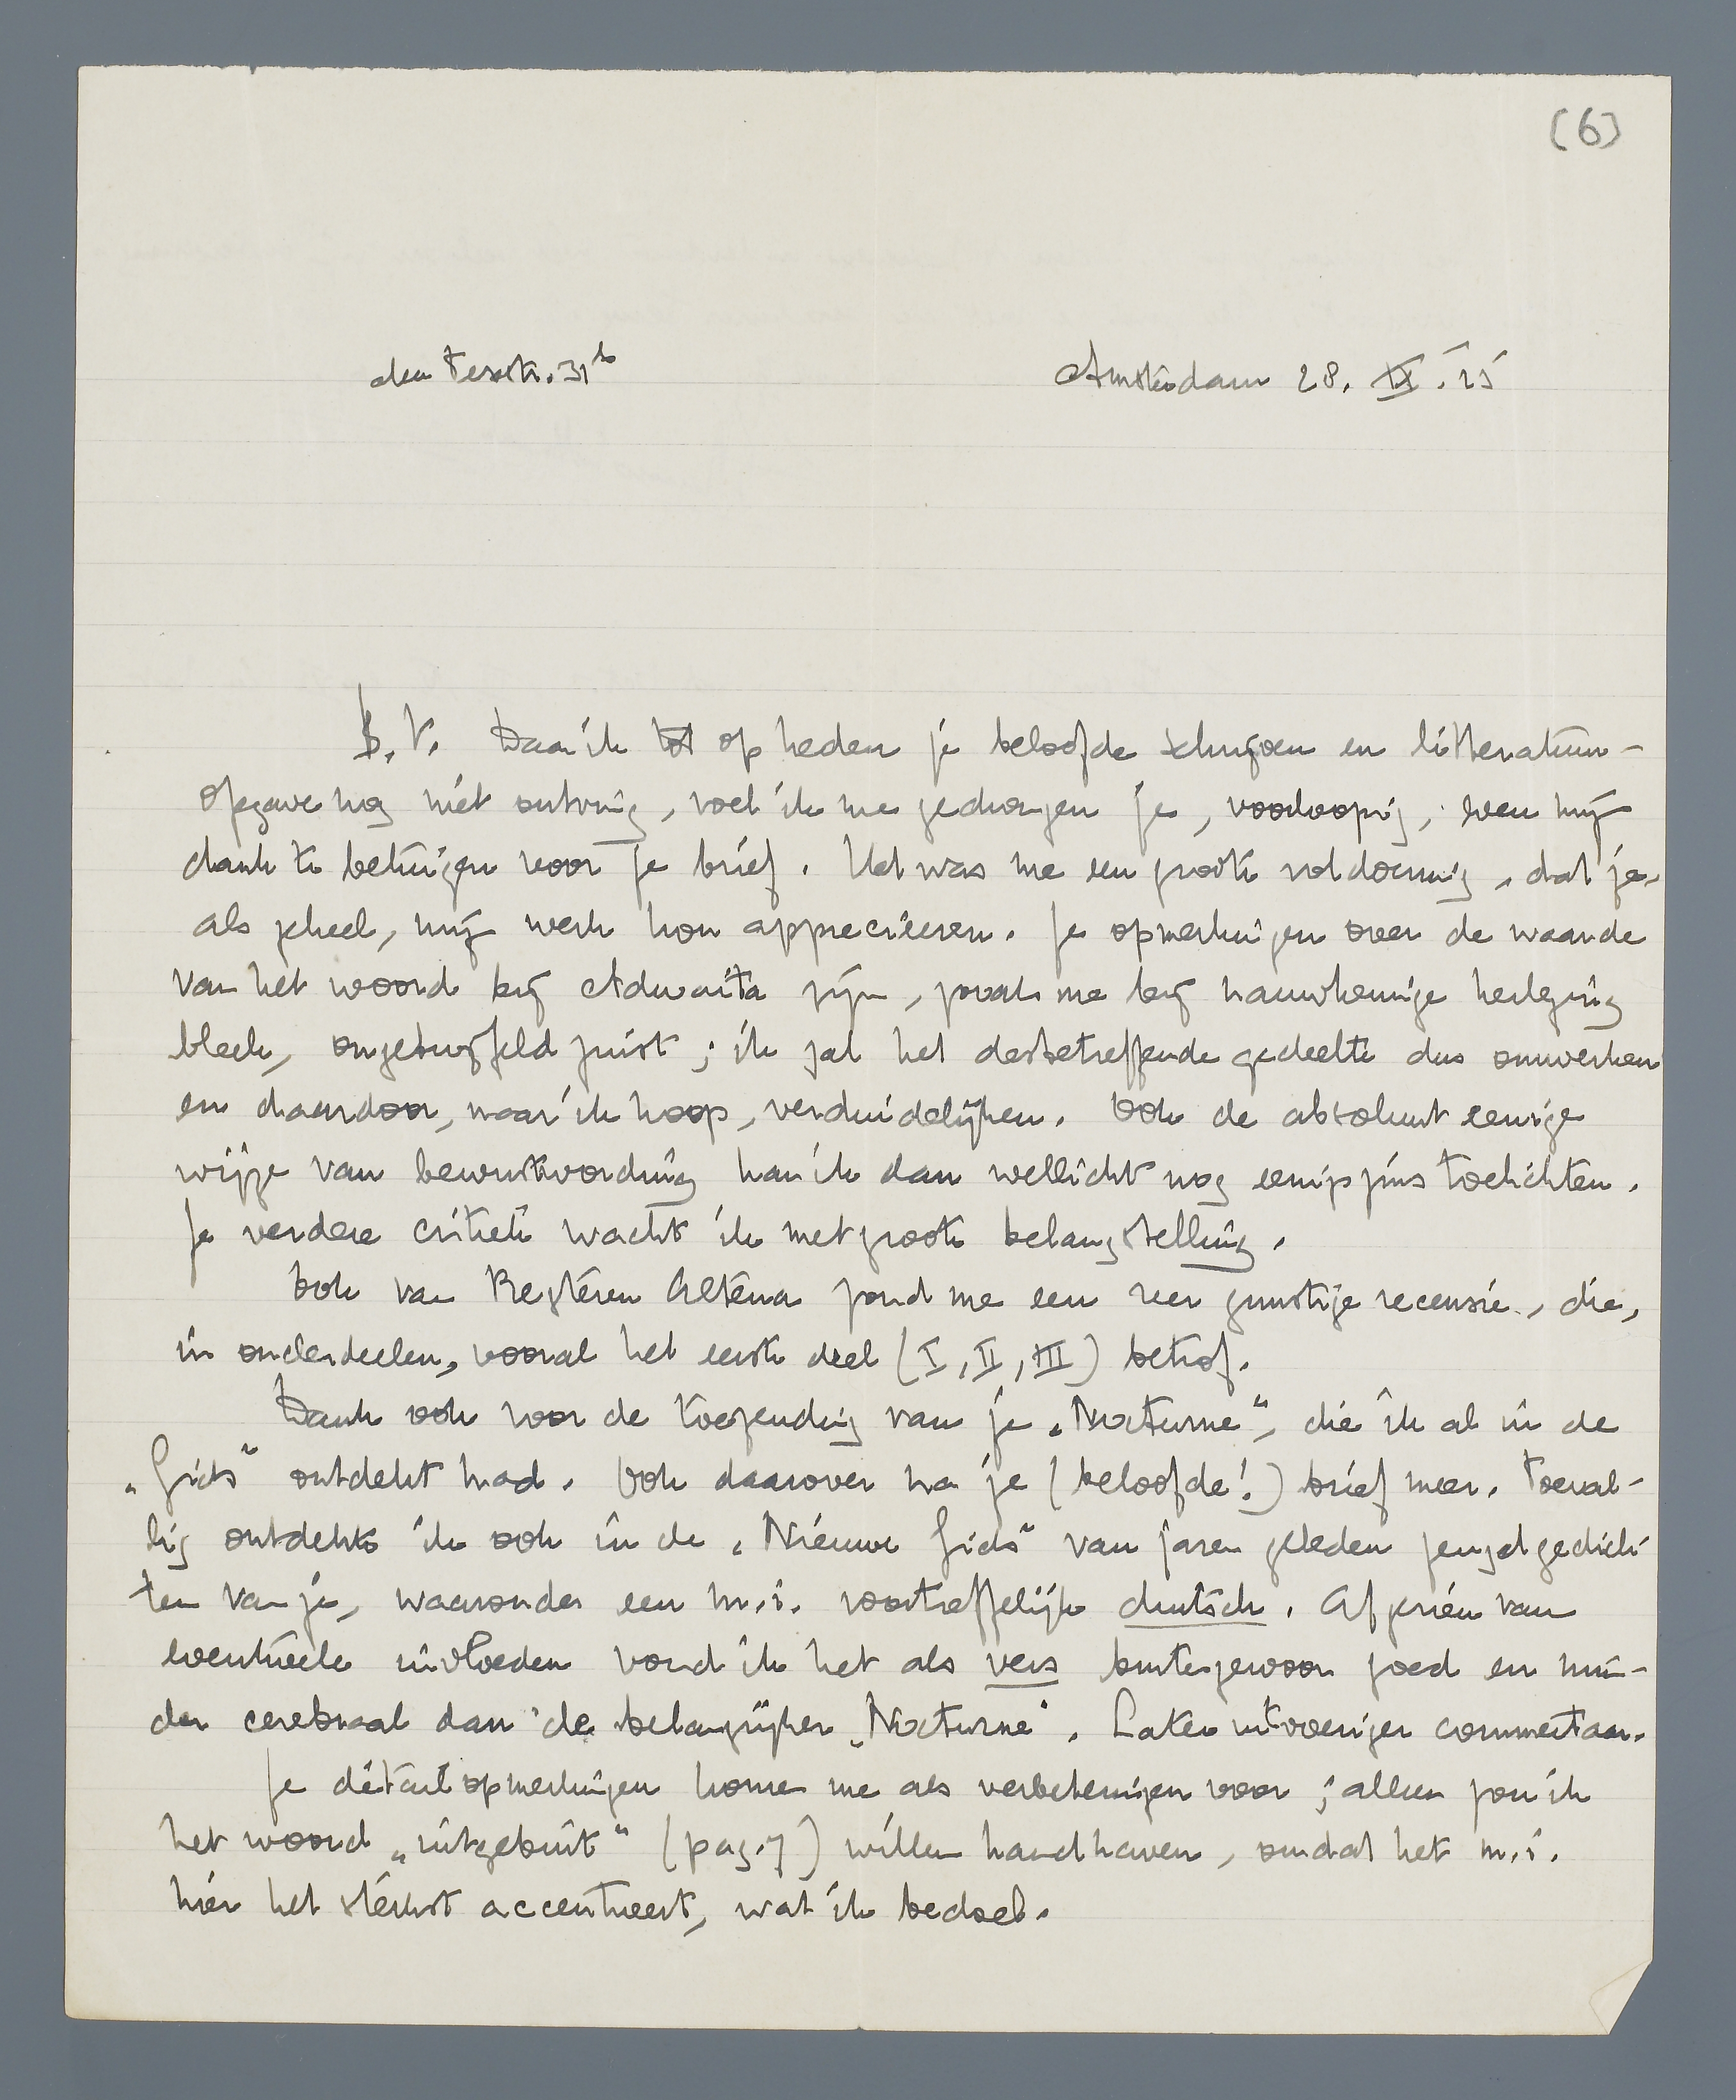 (6)
den Texstr. 31b Amsterdam 28. IX. 25
B. V. Daar ik tot op heden je beloofde schrijven en litteratuur-
opgave nog niet ontving, voel ik me gedrongen je, voorloopig, even mijn
dank te betuigen voor je brief. Het was me een groote voldoening, dat je,
als geheel, mijn werk kon apprecieeren. Je opmerkingen over de waarde
van het woord bij Adwaita zijn, zooals me bij nauwkeurige herlezing
bleek, ongetwijfeld juist; ik zal het desbetreffende gedeelte dus omwerken
en daardoor, naar ik hoop, verduidelijken. Ook de absoluut eenige
wijze van bewustwording kan ik dan wellicht nog eenigszins toelichten.
Je verdere critiek wacht ik met groote belangstelling.
Ook van Regteren Altena zond me een zeer gunstige recensie, die,
in onderdeelen, vooral het eerste deel (I, II, III) betrof.
Dank ook voor de toezending van je „Nocturne“, die ik al in de
„Gids“ ontdekt had. Ook daarover na je (beloofde!) brief meer. Toeval-
lig ontdekte ik ook in de „Nieuwe Gids“ van jaren geleden jeugdgedich-
ten van je, waaronder een m.i. voortreffelijk duitsch. Afgezien van
eventueele invloeden vond ik het als vers buitengewoon goed en min-
der cerebraal dan de belangrijker „Nocturne“. Later uitvoeriger commentaar.
Je détailopmerkingen komen me als verbeteringen voor; alleen zou ik
het woord „uitgebuit“ (pag. 7) willen handhaven, omdat het m.i.
hier het sterkst accentueert, wat ik bedoel.